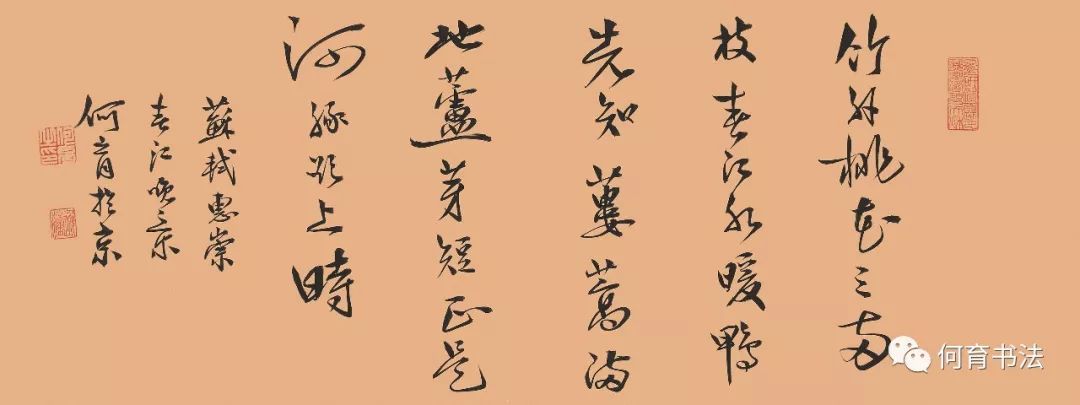 竹外桃花三兩
枝春江水暖鴨
先知蔞蒿滿
地蘆芽短正是
河豚欲上時
蘇軾惠崇
春江晚景
何育於京
何育书法